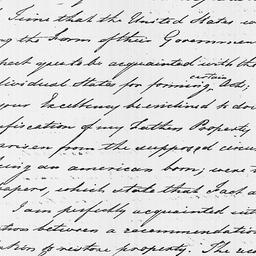 Time that the United States
ing the Form of their Government
pect you to be acquainted with the
dividual States for forming certain Acts;
your Excellency be inclined to do
nfiscation of my Fathers Property
arisen from the supposed
being an american born; were
papers, which state that Fact
I am perfectly acquainted
tion between a recommendation
to restore property. The